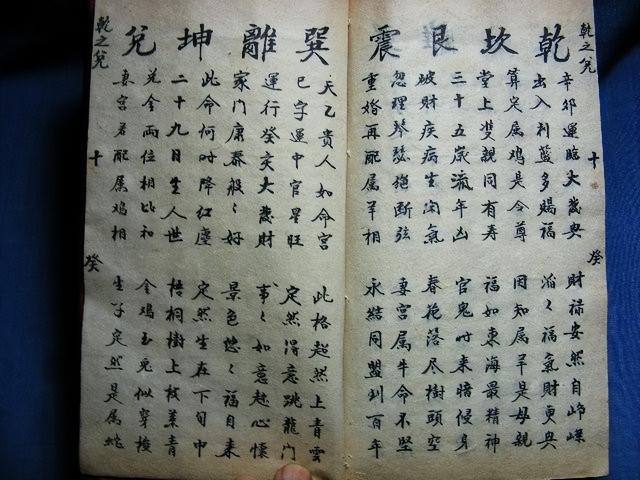 乾之兌 十 癸
乾坎艮震
辛卯運臨大歲興 財祿安然自崢嶸
出入利蓝多賜福 滔々福氣財更興
算定属鸡是令尊 因知属羊是母親
堂上双親同有寿 福如東海最精神
三十五歲流年凶 官鬼时来暗侵身
破財疾病生闲氣 春花落尽樹頭空
忽理琴瑟絕断弦 妻宮属牛命不坚
重婚再配属羊相 永結同盟到百年
巽離坤兌
天乙貴人如命宮 此格超然上青雲
巳字運中官星旺 定然得意跳龍门
運行癸亥大發財 事々如意趁心懷
家门康泰般々好 景色悠々福自来
此命何时降红塵 定然生在下旬中
二十九日生人世 梧桐樹上枝葉青
兌金両位相比和 金鸡玉兔似穿梭
妻宮若配属鸡相 生子定然是属蛇
乾之兌 十 癸